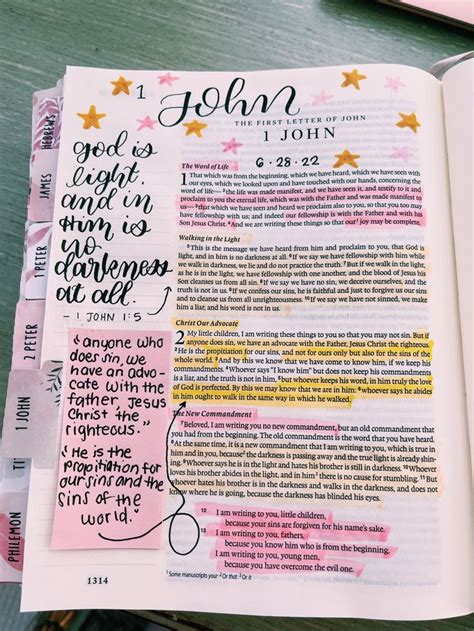 HEBREWS
JAMES
1 PETER
2 PETER
1 JOHN
TI
PHILEMON
1 John
THE FIRST LETTER OF JOHN
1 JOHN
6-28-22
god is
light,
and in
Him is
no
darkness
at all.
- 1 JOHN 1:5
"anyone who
does sin, we
have an advo-
cate with the
father, Jesus
Christ the
righteous."
"He is the
propitiation for
our sins and the
sins of the
world."
The Word of Life
1 That which was from the beginning, which we have heard, which we have seen with
our eyes, which we looked upon and have touched with our hands, concerning the
word of life— 2 the life was made manifest, and we have seen it, and testify to it and
proclaim to you the eternal life, which was with the Father and was made manifest to
us— 3 that which we have seen and heard we proclaim also to you, so that you too may
have fellowship with us; and indeed our fellowship is with the Father and with his
Son Jesus Christ. 4 And we are writing these things so that our 1 joy may be complete.
Walking in the Light
5 This is the message we have heard from him and proclaim to you, that God is
light, and in him is no darkness at all. 6 If we say we have fellowship with him while
we walk in darkness, we lie and do not practice the truth. 7 But if we walk in the light,
as he is in the light, we have fellowship with one another, and the blood of Jesus his
Son cleanses us from all sin. 8 If we say we have no sin, we deceive ourselves, and the
truth is not in us. 9 If we confess our sins, he is faithful and just to forgive us our sins
and to cleanse us from all unrighteousness. 10 If we say we have not sinned, we make
him a liar, and his word is not in us.
Christ Our Advocate
2 My little children, I am writing these things to you so that you may not sin. But if
anyone does sin, we have an advocate with the Father, Jesus Christ the righteous.
2 He is the propitiation for our sins, and not for ours only but also for the sins of the
whole world. 3 And by this we know that we have come to know him, if we keep his
commandments. 4 Whoever says "I know him" but does not keep his commandments
is a liar, and the truth is not in him, 5 but whoever keeps his word, in him truly the love
of God is perfected. By this we may know that we are in him: 6 whoever says he abides
in him ought to walk in the same way in which he walked.
The New Commandment
7 Beloved, I am writing you no new commandment, but an old commandment that
you had from the beginning. The old commandment is the word that you have heard.
8 At the same time, it is a new commandment that I am writing to you, which is true in
him and in you, because 2 the darkness is passing away and the true light is already shin-
ing. 9 Whoever says he is in the light and hates his brother is still in darkness. 10 Whoever
loves his brother abides in the light, and in him 3 there is no cause for stumbling. 11 But
whoever hates his brother is in the darkness and walks in the darkness, and does not
know where he is going, because the darkness has blinded his eyes.
12 I am writing to you, little children,
because your sins are forgiven for his name's sake.
13 I am writing to you, fathers,
because you know him who is from the beginning.
I am writing to you, young men,
because you have overcome the evil one.
1 Some manuscripts your 2 Or that 3 Or it
1314